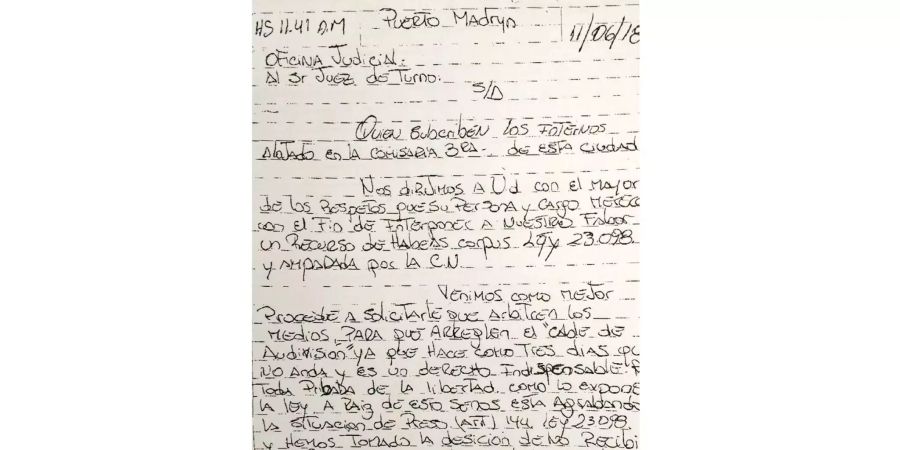 HS 11.41 A.M Puerto Madryn 11/06/18
Oficina Judicial:
Al Sr Juez de Turno:
S/D
Quien Subscriben los Internos
Alojado en la Comisaria 3ra- de esta ciudad
Nos dirijimos A Ud con el mayor
de los Respetos que su Persona y Cargo Merece
con el Fin de Interponer A Nuestro Fabor
un Recurso de Habeas corpus Ley 23.098
y AMPADADA por la C.N.
Venimos como mejor
Procede A Solicitarle que Arbitren los
medios, PARA que ARREGLEN el "Cable de
Audivision" YA que HACE como TRES dias qu
No Anda y es un derecho Indispensable P
Toda Pribada de la libertad. como lo expone
la ley A Raiz de esto Senos esta Agrabando
la situacion de Preso (Art) 144 Ley 23098
y Hemos Tomado la desicion de No Recibi